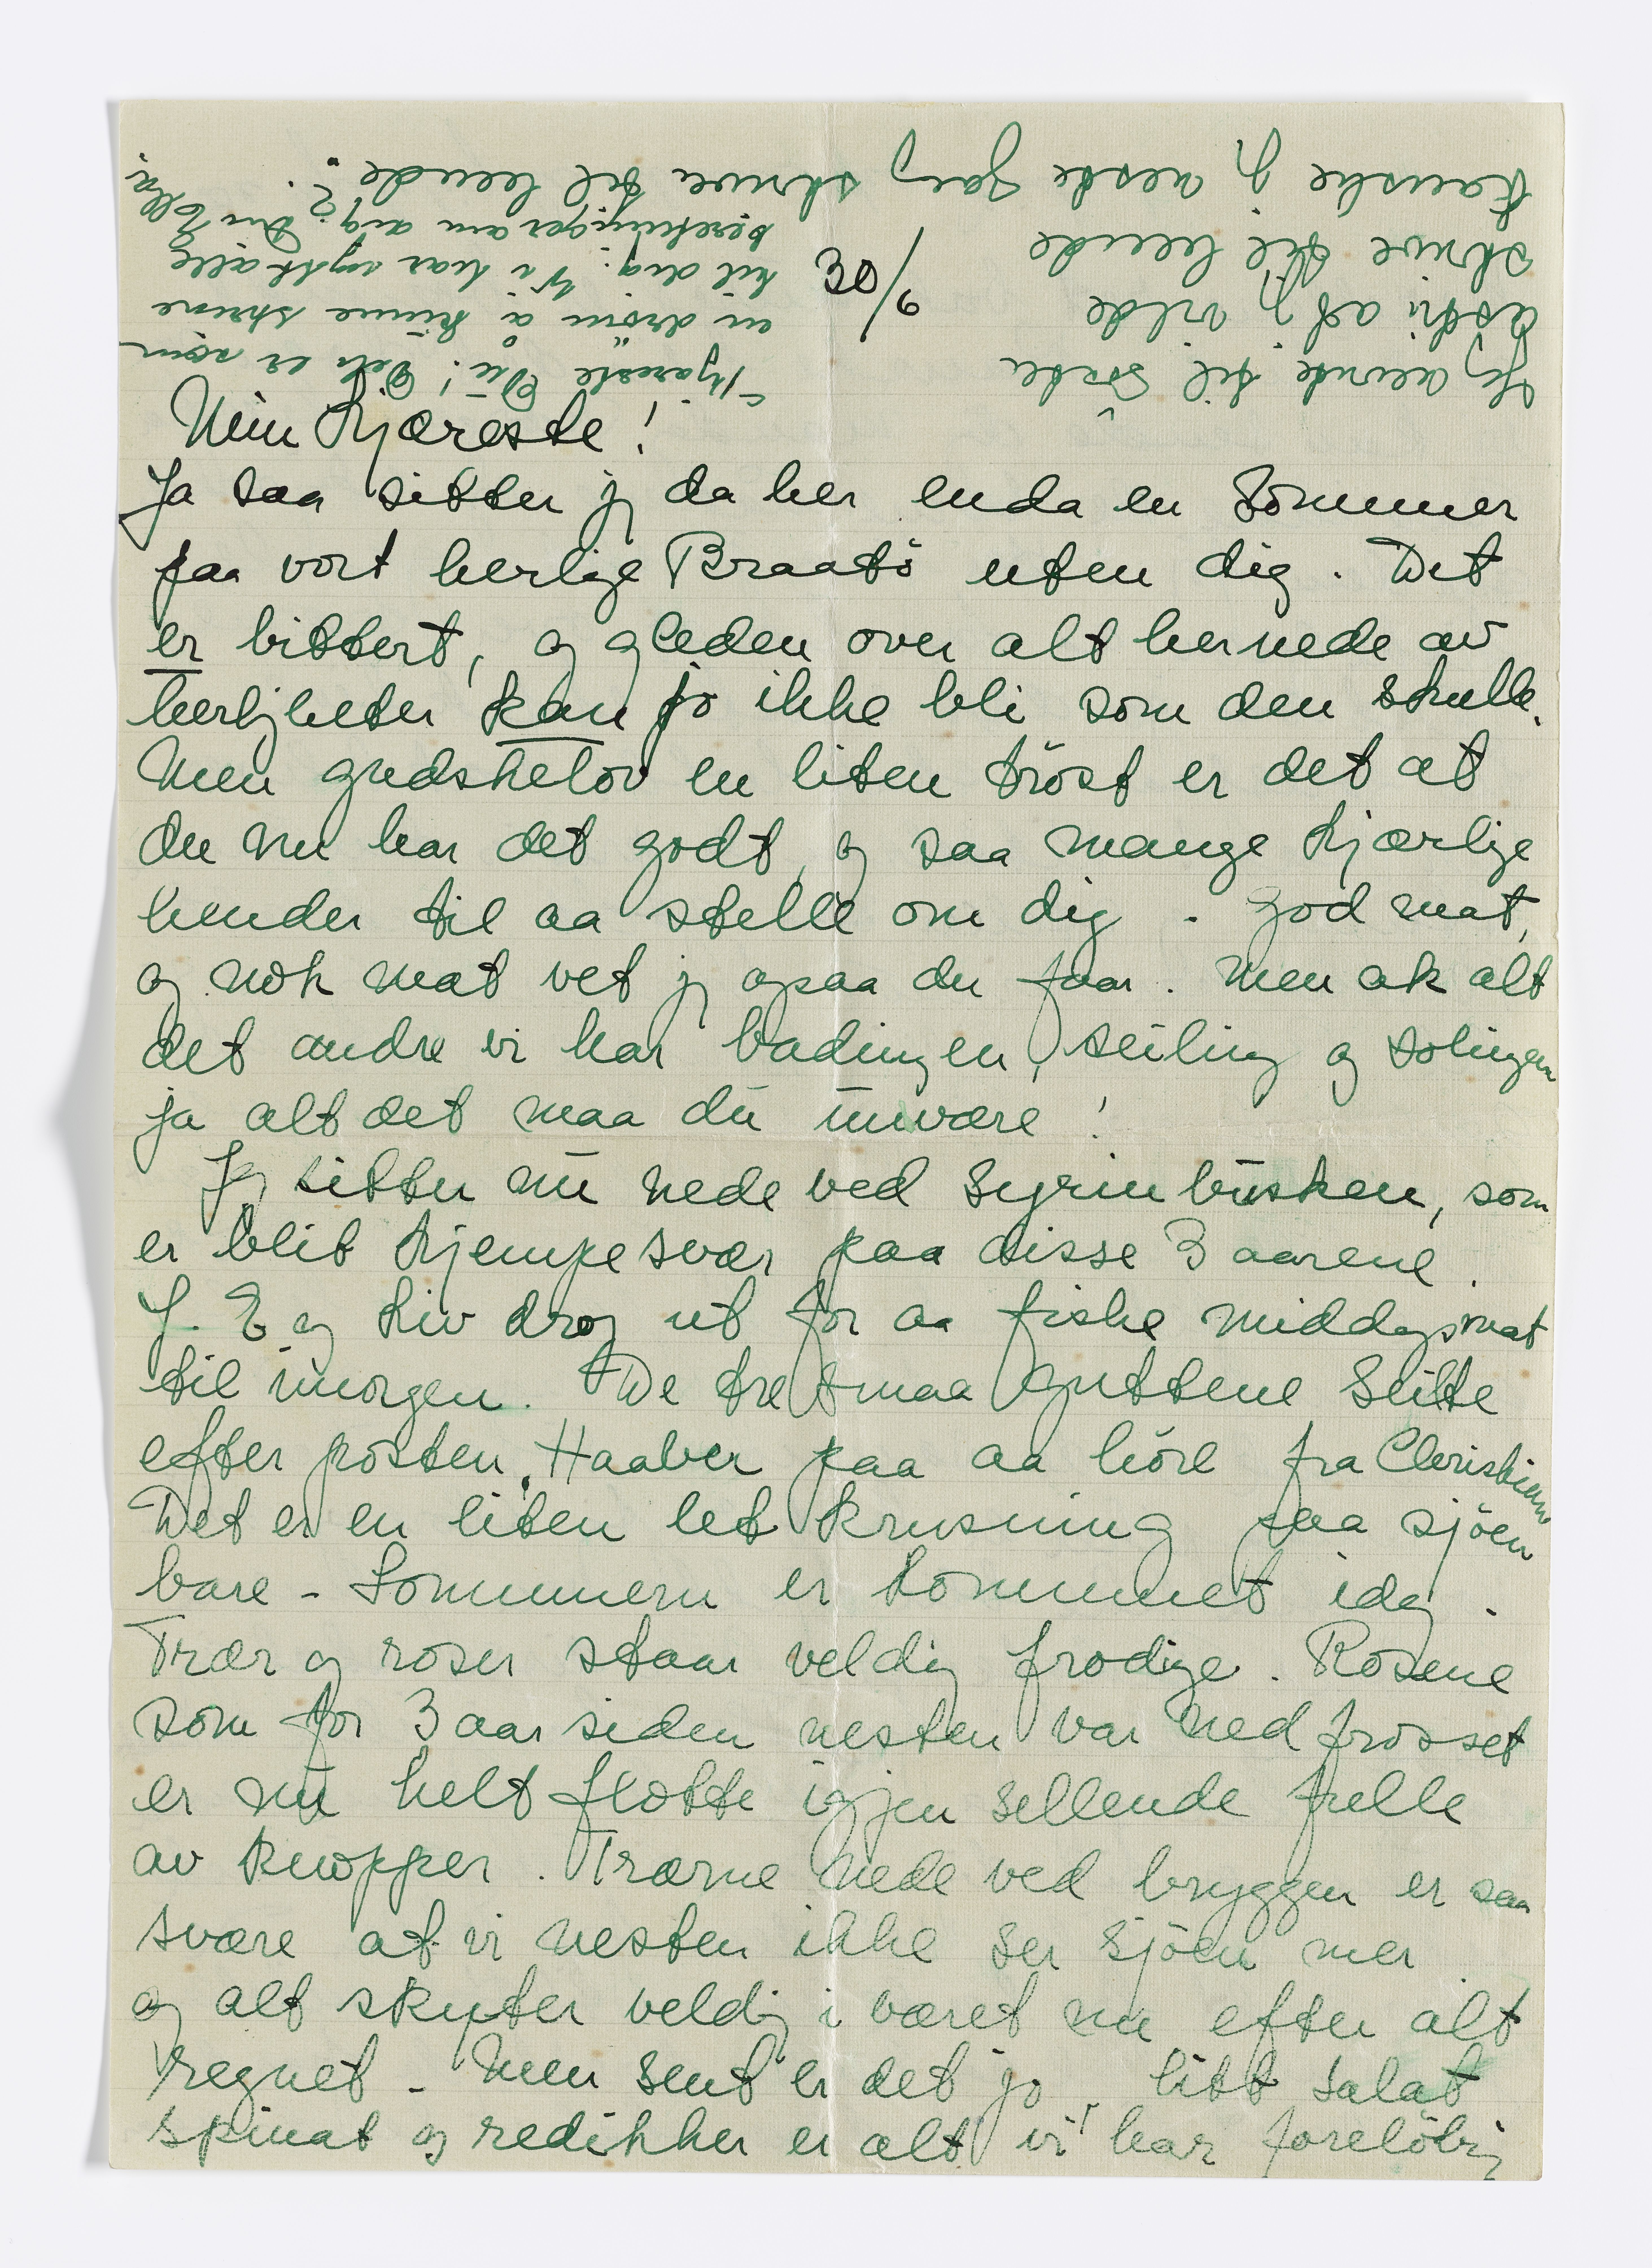 30/6
Min Kjæreste!
Ja saa sitter jg da her enda en Sommer
paa vort herlige Braatö uten dig. Det
er bittert, og gleden over alt hernede av
herligheter kan jo ikke bli som den skulle.
Men gudskelov en liten tröst er det at
du nu har det godt, og saa mange kjærlige
hender til aa stelle om dig. God mat,
og nok mat vet jg ogsaa du faar. Men ak alt
det andre vi har badingen, seiling og solingen
ja alt det maa du unvære!
Jg sitter nu nede ved Syrinbusken, som
er blit kjempesvær paa disse 3 aarene.
J. E og Liv drog ut for aa fiske middagsmat
til imorgen. De tre smaa guttene seilte
efter posten. Haaber paa aa höre fra Christian
Det er en liten let krusning paa sjöen
bare - Sommeren er kommet idag.
Trær og roser staar veldig frodige. Rosene
som for 3 aar siden nesten var nedfrosset
er nu helt flotte igjen sellende fulle
av knopper. Trærne nede ved bryggen er saa
svære at vi nesten ikke ser sjöen mer
og alt skyter veldig i været nu efter alt
regnet - Men sent er det jo, litt salat
spinat og redikker er alt vi har foreløbig
Kjæreste Du! Det er som
en dröm å kunne skrive
til dig. Vi har nytt alle
beretninger om dig? Din Ella
Jeg nevnte til Söster
at jg vilde
skrive til hende
Kanskje jg neste gang skriver til hende.